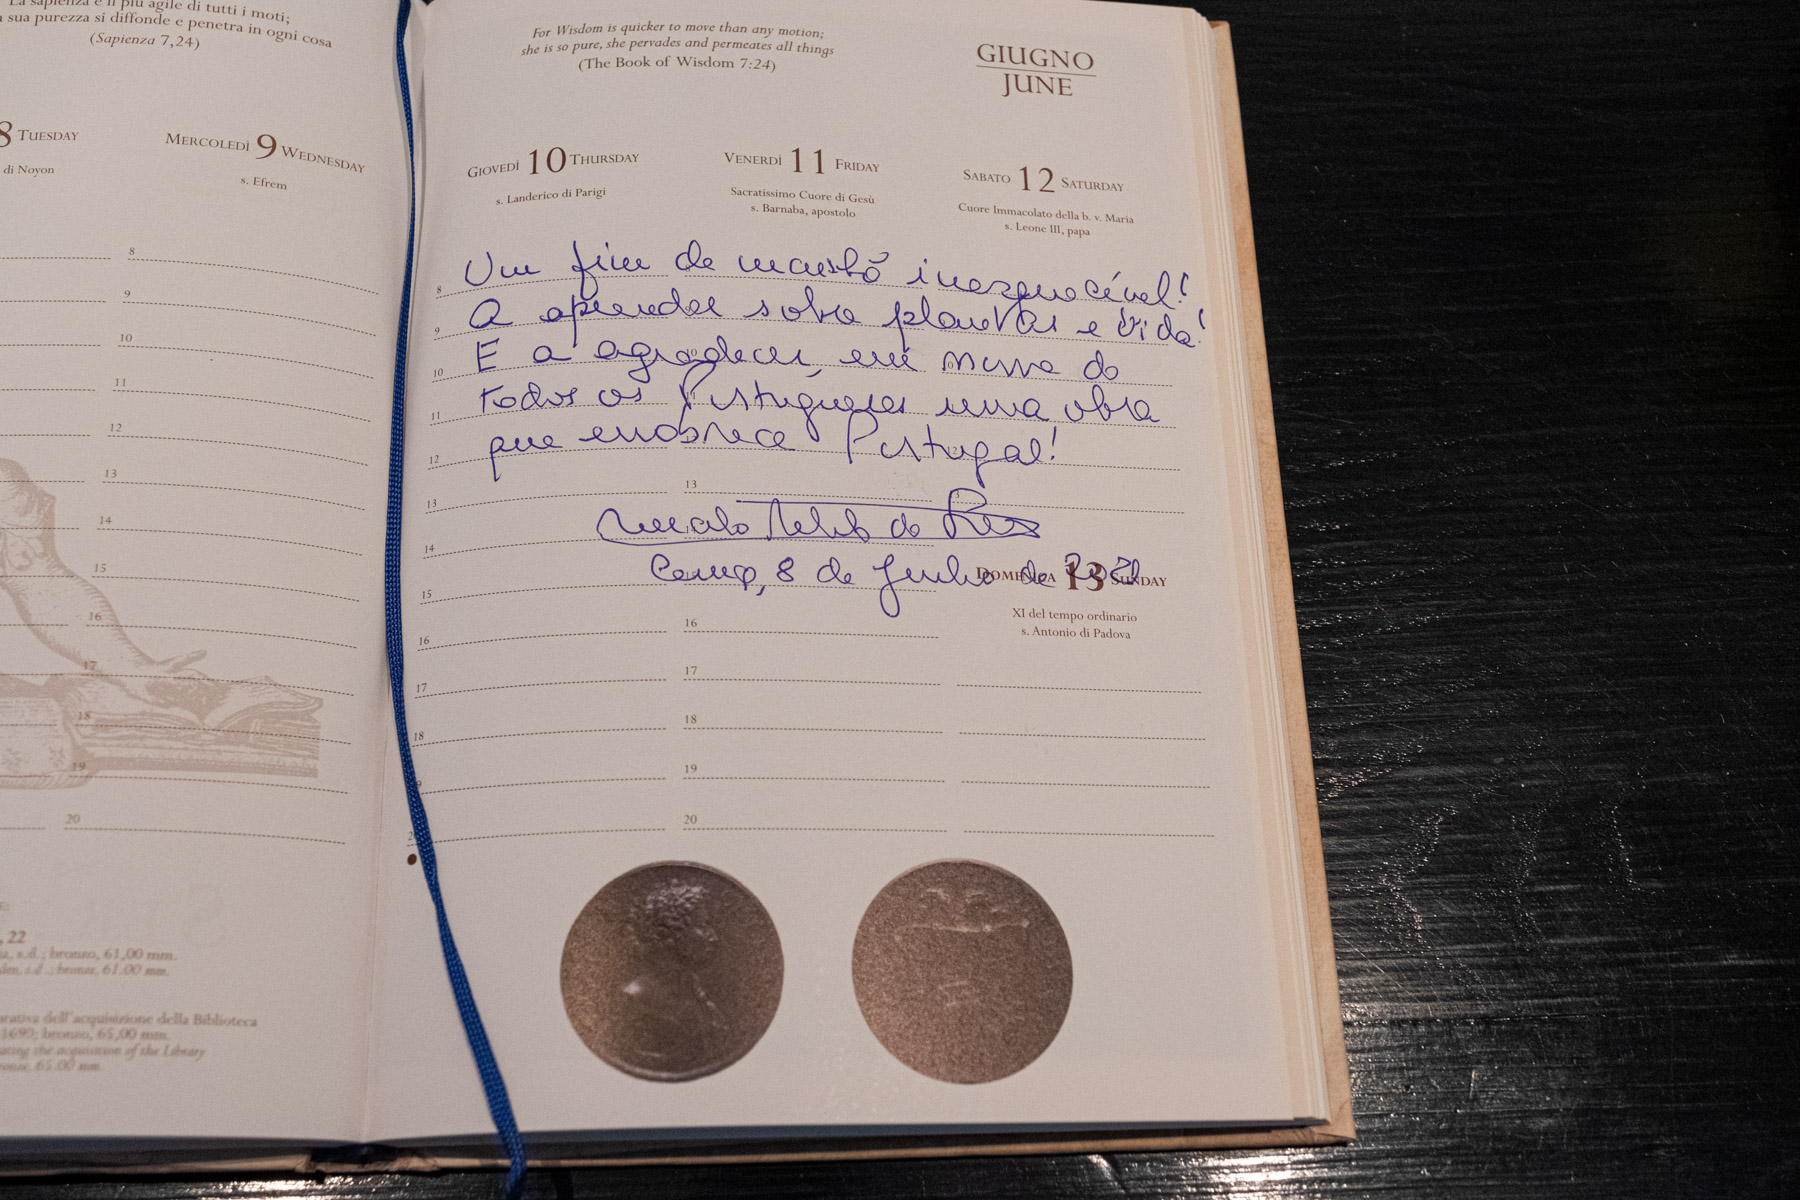 La sapienza è il più agile di tutti i moti;
sua purezza si diffonde e penetra in ogni cosa
(Sapienza 7,24)
8 TUESDAY
di Noyon
MERCOLEDÌ 9 WEDNESDAY
s. Efrem
8
9
10
11
12
13
14
15
16
17
18
19
20
, 22
s.d.; bronzo, 61,00 mm.
s.d.; bronze, 61.00 mm.
dell'acquisizione della Biblioteca
1690; bronzo, 65,00 mm.
the acquisition of the Library
65.00 mm.
For Wisdom is quicker to move than any motion;
she is so pure, she pervades and permeates all things
(The Book of Wisdom 7:24)
GIUGNO
JUNE
GIOVEDÌ 10 THURSDAY
s. Landerico di Parigi
VENERDÌ 11 FRIDAY
Sacratissimo Cuore di Gesù
s. Barnaba, apostolo
SABATO 12 SATURDAY
Cuore Immacolato della b. v. Maria
s. Leone III, papa
Um fim de manhã inesquecível!
A aprender sobre plantas e vida!
E a agradecer, em nome de
todos os Portugueses uma obra
que enobrece Portugal!
Marcelo Rebelo de Sousa
8 de Junho de 2021
8
9
10
11
12
13
14
15
16
17
18
13
16
17
18
19
20
DOMENICA 13 SUNDAY
XI del tempo ordinario
s. Antonio di Padova